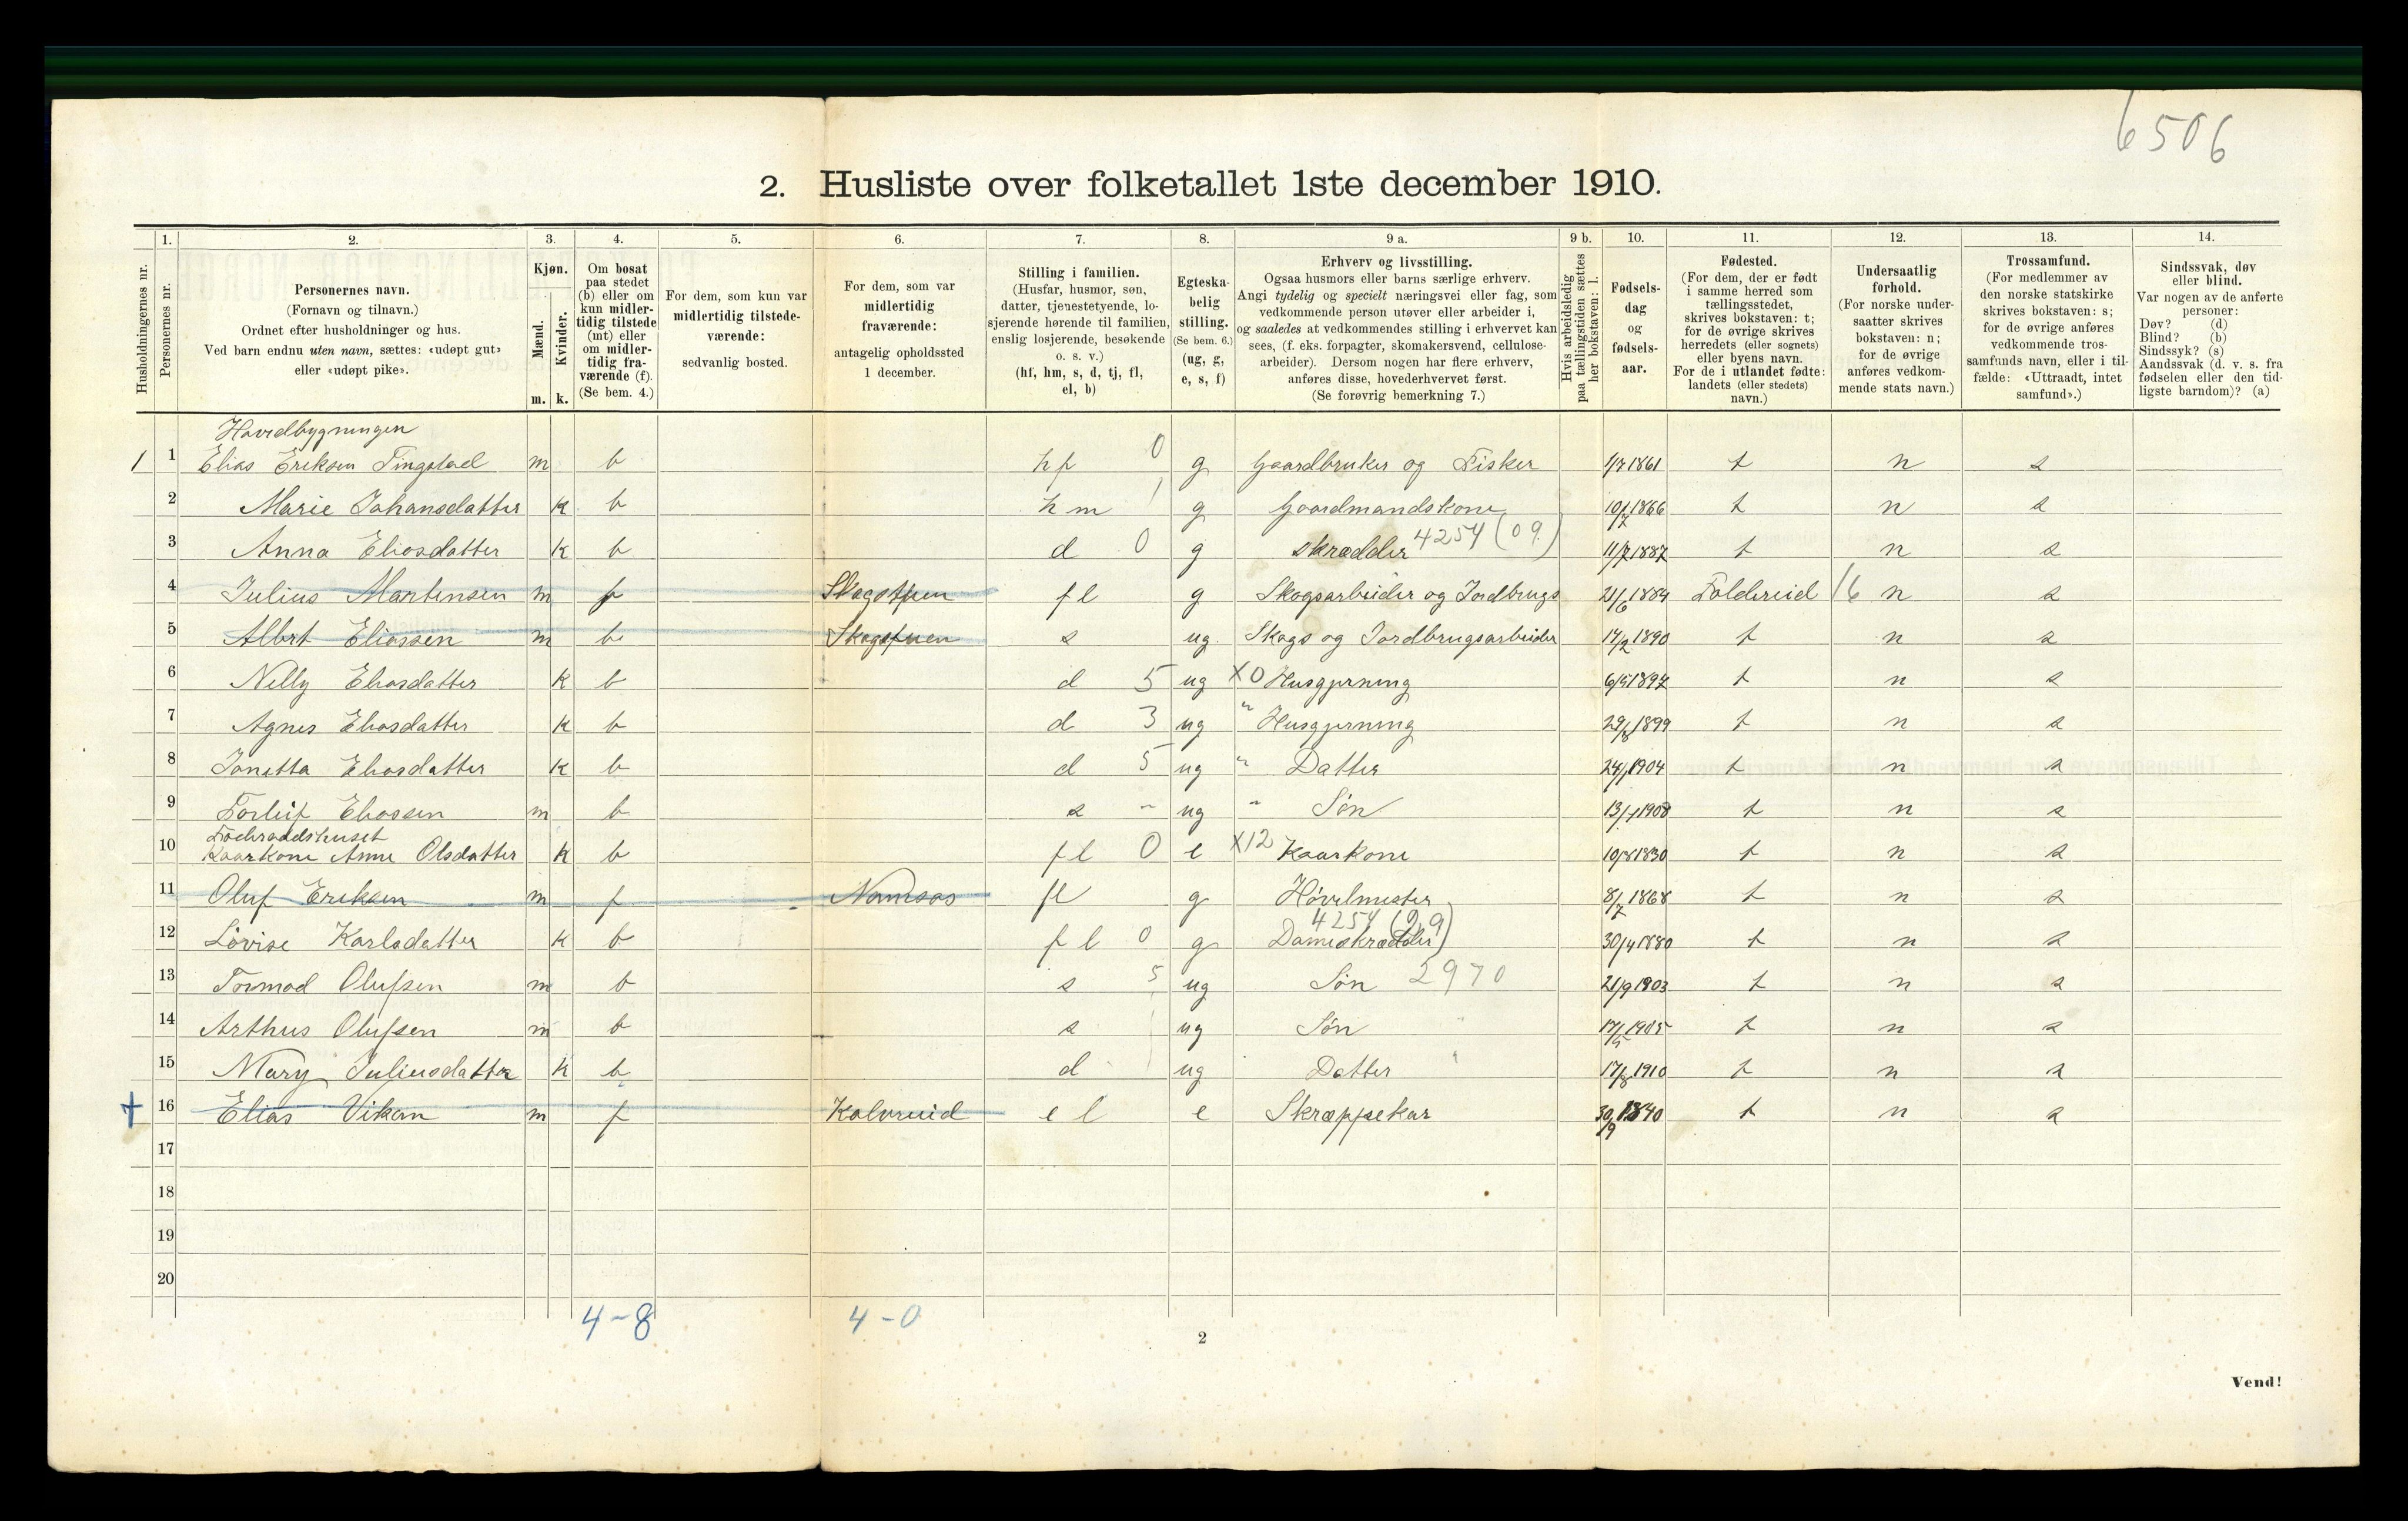 6506
2. Husliste over folketallet 1ste december 1910.
Husholdningernes nr.
1. Personernes nr.
2. Personernes navn.
(Fornavn og tilnavn.)
Ordnet efter husholdninger og hus.
Ved barn endnu uten navn, sættes: «udøpt gut»
eller «udøpt pike».
3. Kjøn.
Mænd. m.
Kvinder. k.
4. Om bosat
paa stedet
(b) eller om
kun midler-
tidig tilstede
(mt) eller
om midler-
tidig fra-
værende (f).
(Se bem. 4.)
5. For dem, som kun var
midlertidig tilstede-
værende:
sedvanlig bosted.
6. For dem, som var
midlertidig
fraværende:
antagelig opholdssted
1 december.
7. Stilling i familien.
(Husfar, husmor, søn,
datter, tjenestetyende, lo-
sjerende hørende til familien,
enslig losjerende, besøkende
o. s. v.)
(hf, hm, s, d, tj, fl,
el, b)
8. Egteska-
belig
stilling.
(Se bem. 6.)
(ug, g,
e, s, f)
9 a. Erhverv og livsstilling.
Ogsaa husmors eller barns særlige erhverv.
Angi tydelig og specielt næringsvei eller fag, som
vedkommende person utøver eller arbeider i,
og saaledes at vedkommendes stilling i erhvervet kan
sees, (f. eks. forpagter, skomakersvend, cellulose-
arbeider). Dersom nogen har flere erhverv,
anføres disse, hovederhvervet først.
(Se forøvrig bemerkning 7.)
9 b. Hvis arbeidsledig
paa tællingstiden sættes
her bokstaven: l.
10. Fødsels-
dag
og
fødsels-
aar.
11. Fødested.
(For dem, der er født
i samme herred som
tællingsstedet,
skrives bokstaven: t;
for de øvrige skrives
herredets (eller sognets)
eller byens navn.
For de i utlandet fødte:
landets (eller stedets)
navn.)
12. Undersaatlig
forhold.
(For norske under-
saatter skrives
bokstaven: n;
for de øvrige
anføres vedkom-
mende stats navn.)
13. Trossamfund.
(For medlemmer av
den norske statskirke
skrives bokstaven: s;
for de øvrige anføres
vedkommende tros-
samfunds navn, eller i til-
fælde: «Uttraadt, intet
samfund».)
14. Sindssvak, døv
eller blind.
Var nogen av de anførte
personer:
Døv? (d)
Blind? (b)
Sindssyk? (s)
Aandssvak (d. v. s. fra
fødselen eller den tid-
ligste barndom)? (a)
Hovedbygningen
1 1 Elias Eriksen Tingstad m b hf 0 g Gaardbruker og Fisker 1/7 1861 t n s
2 Marie Johansdatter k b hm g Gaardmandskone 10/7 1866 t n s
3 Anna Eliasdatter k b d 0 g Skrædder 4254 (09.) 11/7 1887 t n s
4 Julius Martensen m f Skogstuen fl g Skogsarbeider og Jordbrugs 21/6 1884 Foldereid 16 n s
5 Albrt Eliassen m b Skogstuen s ug Skogs og Jordbrugsarbeider 14/2 1890 t n s
6 Nelly Eliasdatter k b d 5 ug X0 Husgjerning 6/5 1897 t n s
7 Agnes Eliasdatter k b d 3 ug " Husgjerning 29/8 1899 t n s
8 Jonetta Eliasdatter k b d 5 ug " Datter 24/1 1904 t n s
9 Torleif Eliassen m b s " ug " Søn 13/1 1908 t n s
Føderaadshuset
10 Kaarkone Anne Olsdatter k b fl 0 e X12 Kaarkone 10/8 1830 t n s
11 Oluf Eriksen m f Namsos fl g Høvelmester 8/7 1868 t n s
12 Lovise Karlsdatter k b fl 0 g Dameskrædder 4254 (09) 30/4 1880 t n s
13 Tormod Olufsen m b s 5 ug Søn 2970 21/9 1903 t n s
14 Arthur Olufsen m b s ug Søn " 17/5 1905 t n s
15 Mary Juliusdatter k b d ug Datter " 17/8 1910 t n s
16 Elias Vikan m f Kolvereid el e Skræppekar 30/9 1840 t n s
17
18
19
20
4-8 4-0
2
Vend!